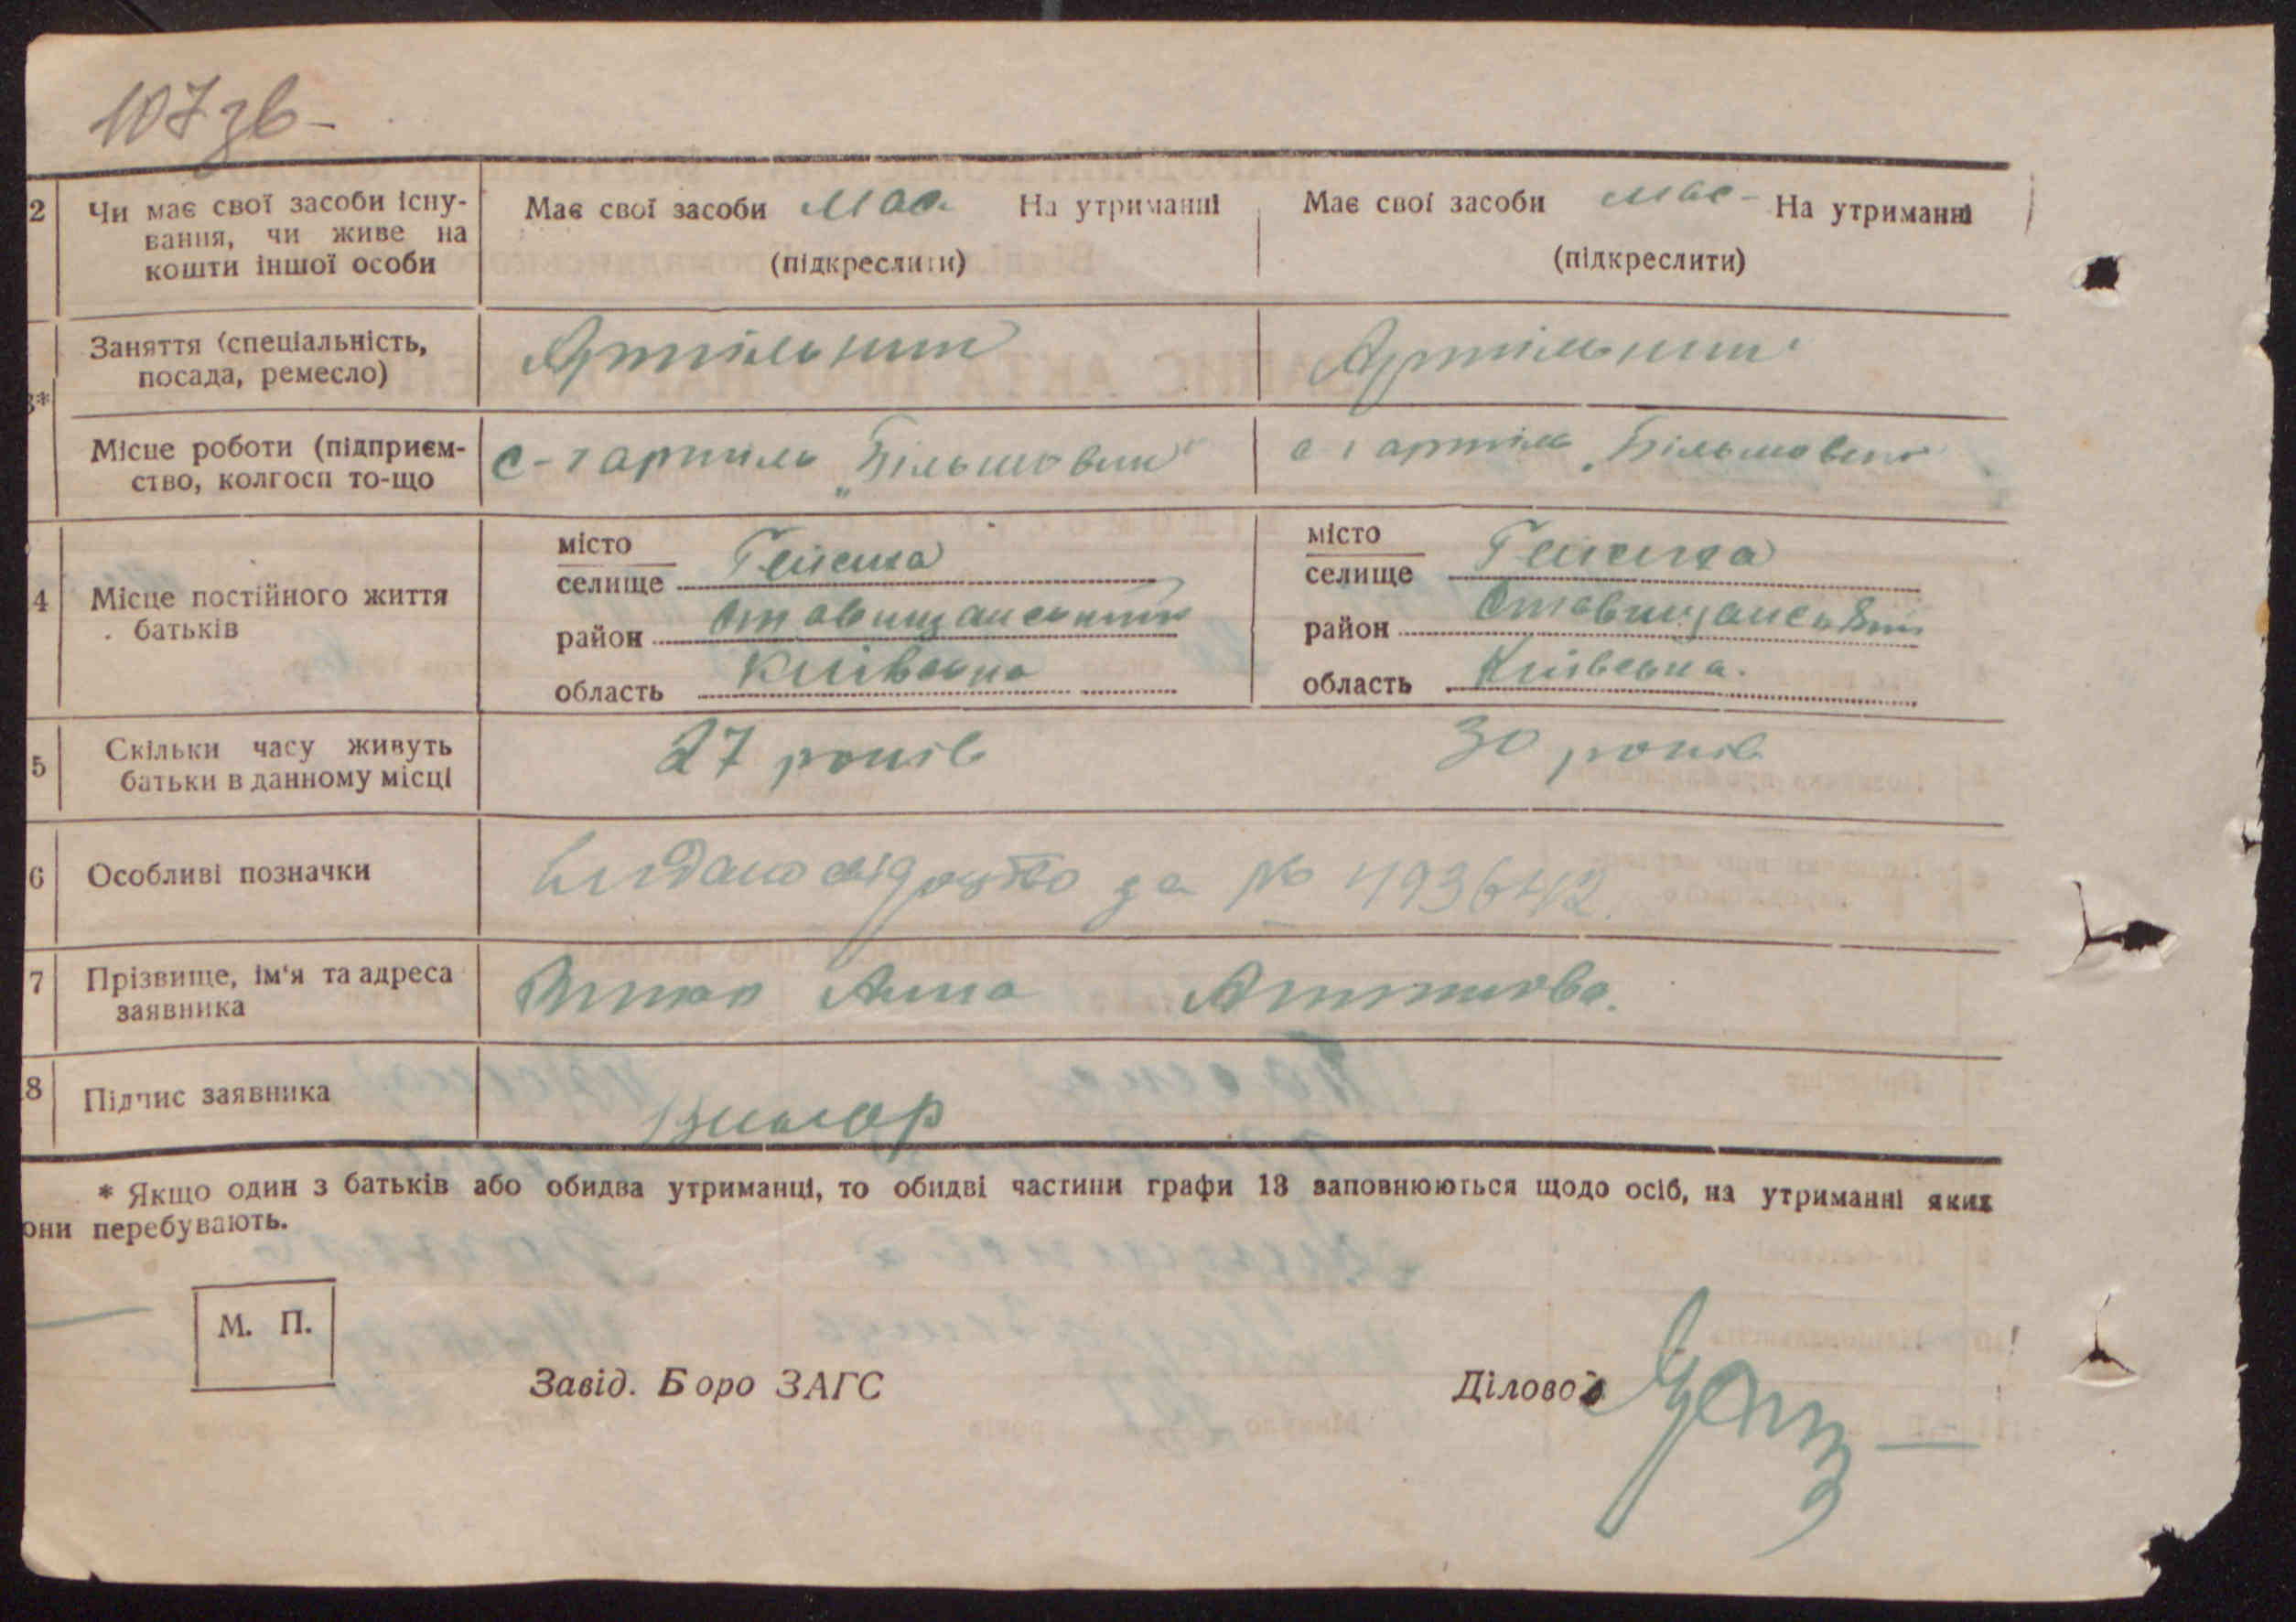 107 зв-
2 Чи має свої засоби існу- Має свої засоби має На утриманні Має свої засоби має - На утриманні
вання, чи живе на
кошти іншої особи (підкреслити) (підкреслити)
Заняття (спеціальність, Артільник Артільник
посада, ремесло)
3*
Місце роботи (підприєм- с-г артіль „Більшовик" с г артіль „Більшовик"
ство, колгосп то-що
4 Місце постійного життя
батьків
місто
селище Гейсиха
район Ставищанський
область Київська
місто
селище Гейсиха
район Ставищанський
область Київська.
5 Скільки часу живуть 27 років 30 років
батьки в данному місці
6 Особливі позначки Видано свідоцтво за № 493642
7 Прізвище, ім'я та адреса Анна
заявника
8 Підпис заявника
* Якщо один з батьків або обидва утриманці, то обидві частини графи 13 заповнюються щодо осіб, на утриманні яких
они перебувають.
М. П.
Завід. Боро ЗАГС Діловод